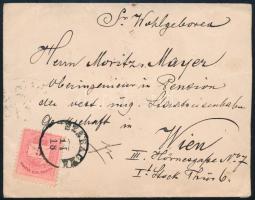 Sr. Wohlgeboren
Herrn Moritz Mayer
Oberingenieur in Pension
der öst. ung. Staatseisenbahn
Gesellschaft in
Wien
III. Hörnesgasse No 7
I. Stock Thür 6.